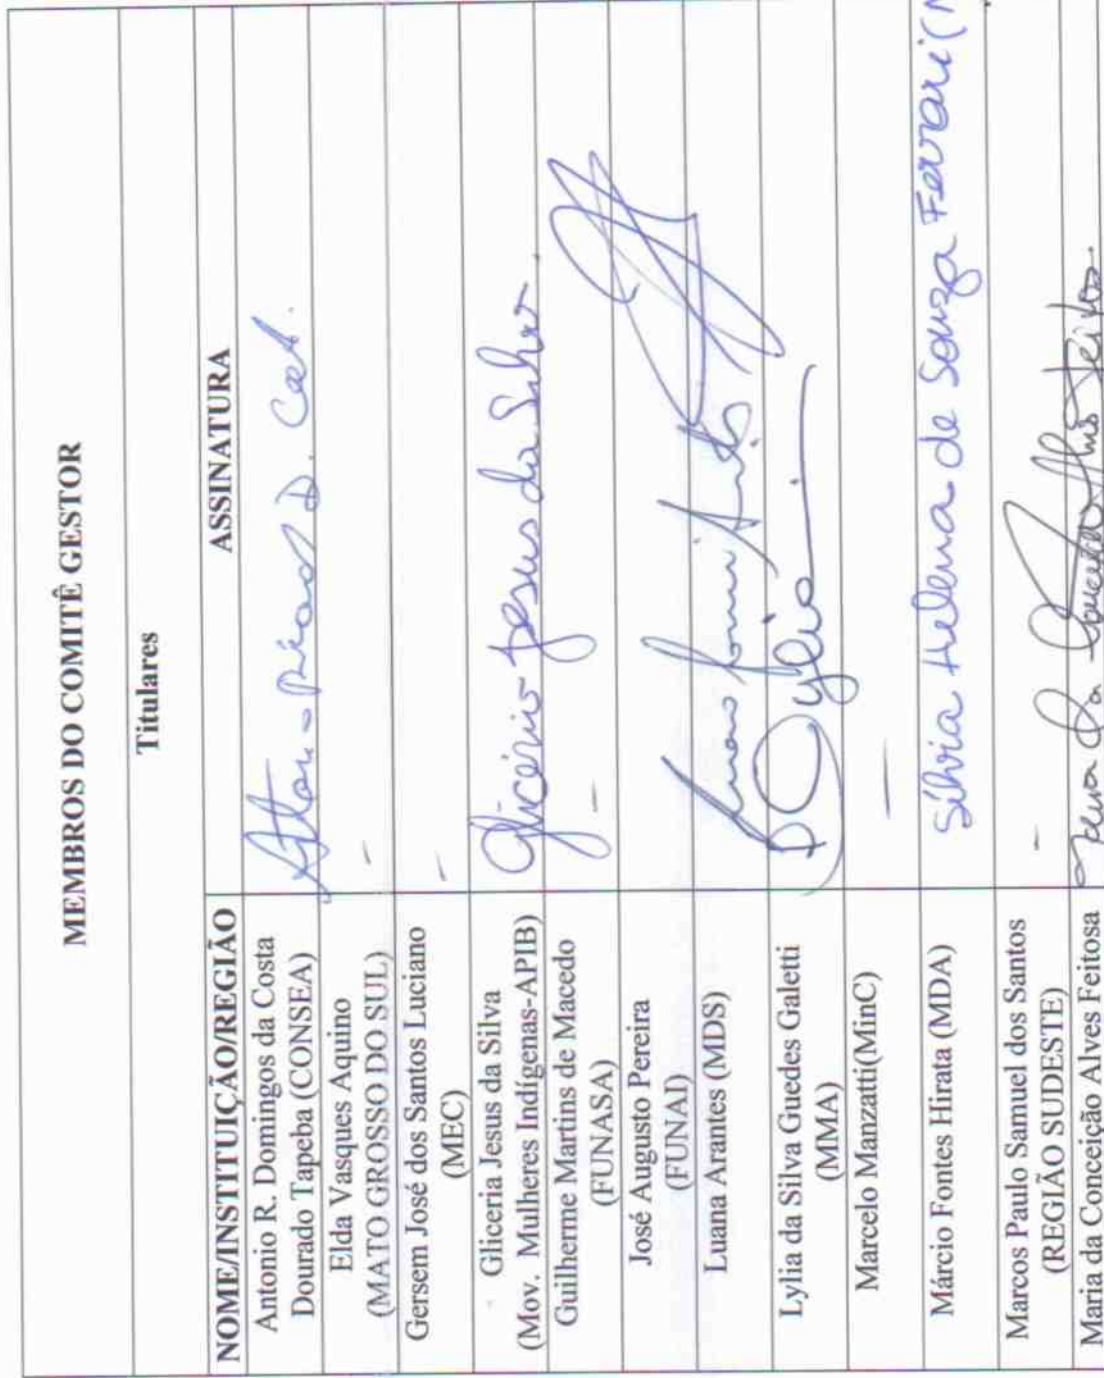 MEMBROS DO COMITÊ GESTOR
Titulares
NOME/INSTITUIÇÃO/REGIÃO
ASSINATURA
Antonio R. Domingos da Costa
Dourado Tapeba (CONSEA)
D.
Elda Vasques Aquino
(MATO GROSSO DO SUL)
–
Gersem José dos Santos Luciano
(MEC)
–
Gliceria Jesus da Silva
(Mov. Mulheres Indígenas-APIB)
Glicéria Jesus da Silva
Guilherme Martins de Macedo
(FUNASA)
–
José Augusto Pereira
(FUNAI)
Luana Arantes (MDS)
Lylia da Silva Guedes Galetti
(MMA)
Lylia
Marcelo Manzatti(MinC)
–
Márcio Fontes Hirata (MDA)
Sílvia Helena de Souza Ferrari (
Marcos Paulo Samuel dos Santos
(REGIÃO SUDESTE)
–
Maria da Conceição Alves Feitosa